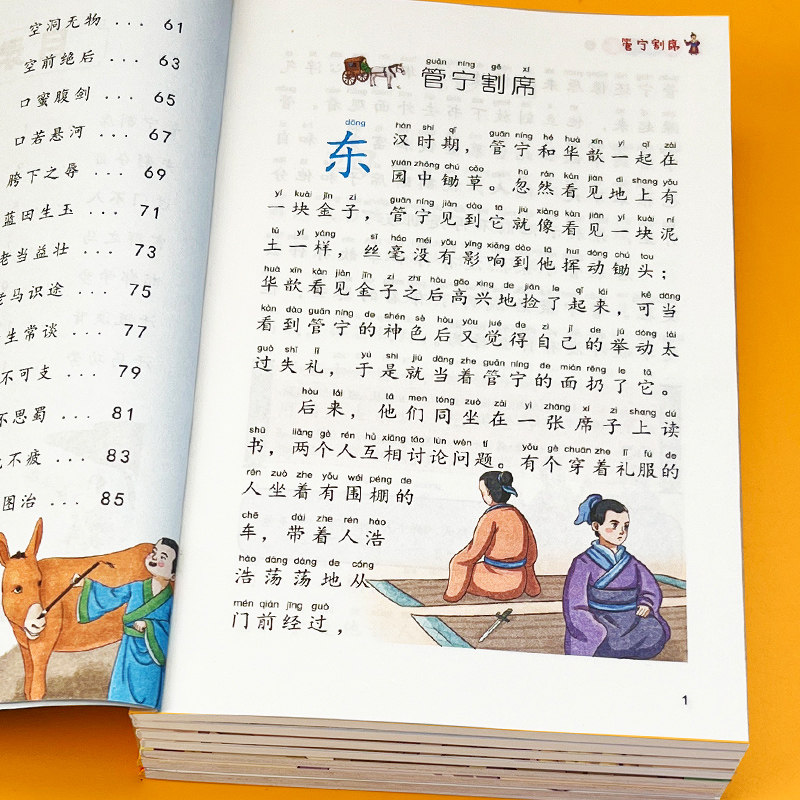 空洞无物 ... 61
空前绝后 ... 63
口蜜腹剑 ... 65
口若悬河 ... 67
胯下之辱 ... 69
蓝田生玉 ... 71
老当益壮 ... 73
老马识途 ... 75
生常谈 ... 77
不可支 ... 79
不思蜀 ... 81
不疲 ... 83
图治 ... 85
管宁割席
guǎn níng gē xí
管宁割席
dōng hàn shí qī guǎn níng hé huà xīn yì qǐ zài
东汉时期，管宁和华歆一起在
yuán zhōng chú cǎo hū rán kàn jiàn dì shang yǒu
园中锄草。忽然看见地上有
yí kuài jīn zi guǎn níng jiàn dào tā jiù xiàng kàn jiàn yí kuài ní
一块金子，管宁见到它就像看见一块泥
tǔ yí yàng sī háo méi yǒu yǐng xiǎng dào tā huī dòng chú tou
土一样，丝毫没有影响到他挥动锄头；
huà xīn kàn jiàn jīn zi zhī hòu gāo xìng de jiǎn le qǐ lái kě dāng
华歆看见金子之后高兴地捡了起来，可当
kàn dào guǎn níng de shén sè hòu yòu jué de zì jǐ de jǔ dòng tài
看到管宁的神色后又觉得自己的举动太
guò shī lǐ yú shì jiù dāng zhe guǎn níng de miàn rēng le tā
过失礼，于是就当着管宁的面扔了它。
hòu lái tā men tóng zuò zài yì zhāng xí zi shang dú
后来，他们同坐在一张席子上读
shū liǎng gè rén hù xiāng tǎo lùn wèn tí yǒu gè chuān zhe lǐ fú de
书，两个人互相讨论问题。有个穿着礼服的
rén zuò zhe yǒu wéi péng de
人坐着有围棚的
chē dài zhe rén hào
车，带着人浩
hào dàng dàng de cóng
浩荡荡地从
mén qián jīng guò
门前经过，
1